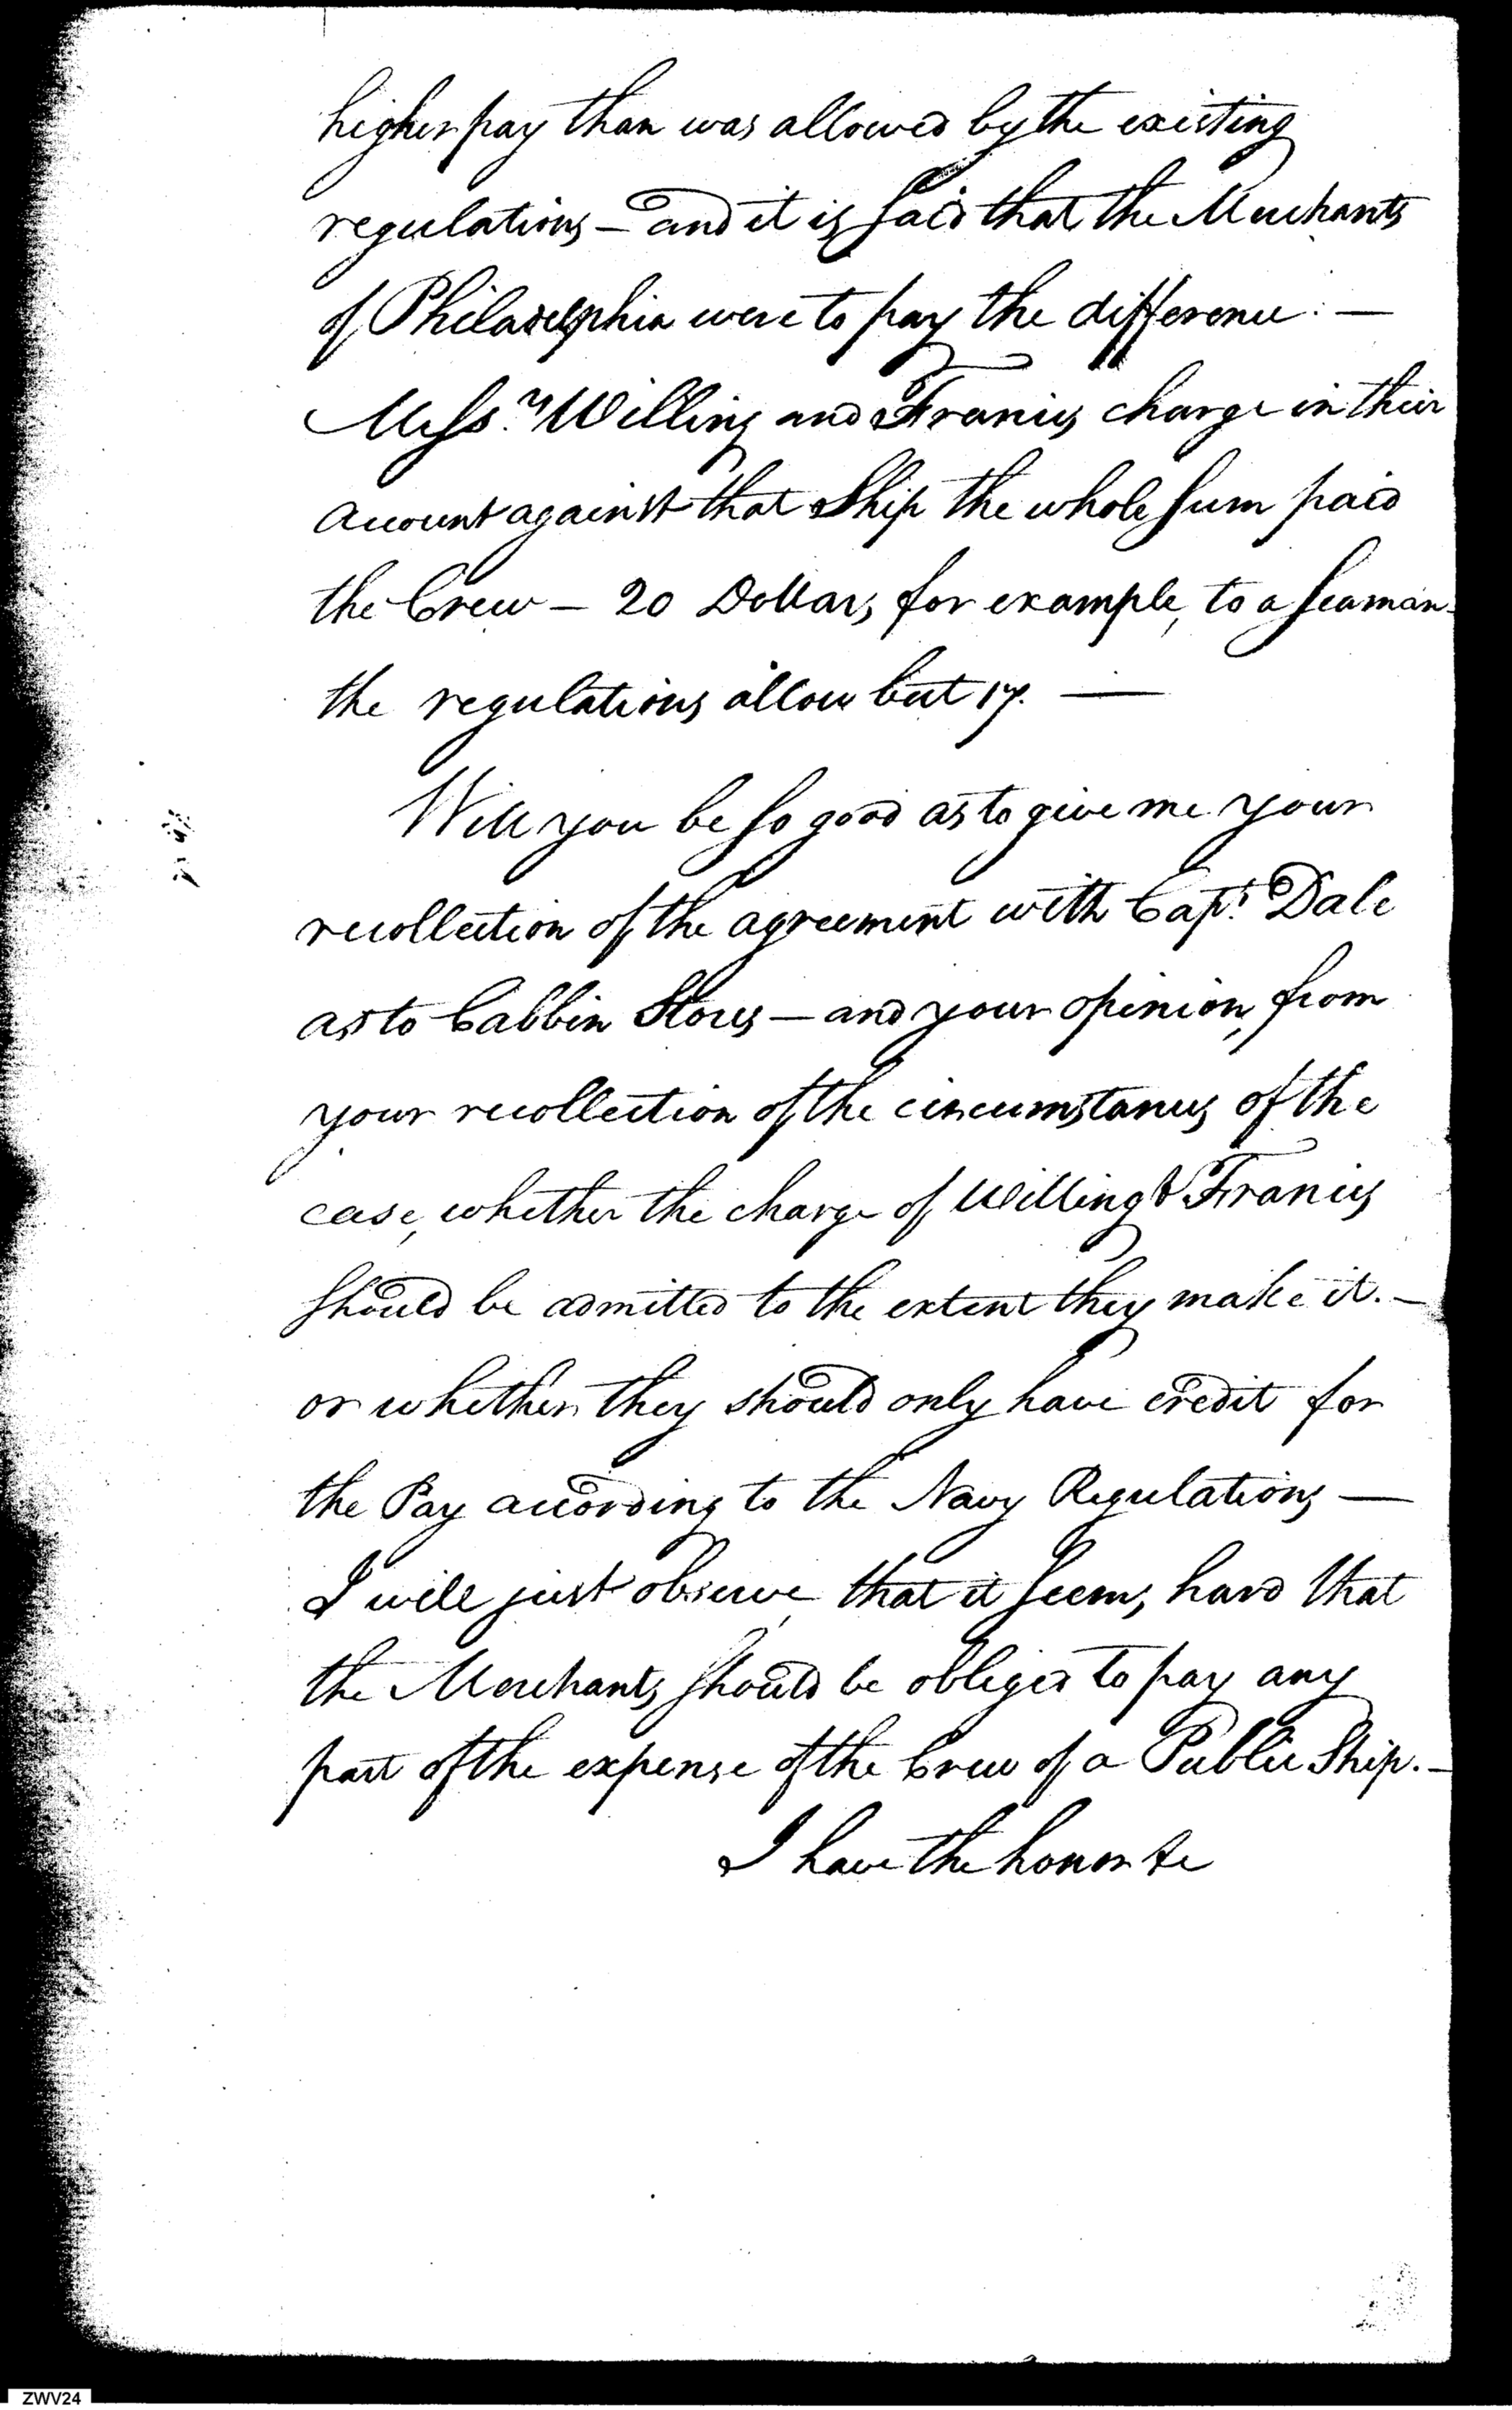 higher pay than was allowed by the existing
regulations — and it is said that the Merchants
of Philadelphia were to pay the difference: —
Messrs. Willing and Francis charge in their
account against that Ship the whole sum paid
the Crew — 20 Dollars, for example, to a seaman
the regulations allow but 17. —
Will you be so good as to give me your
recollection of the agreement with Capt. Dale
as to Cabbin Stores — and your opinion, from
your recollection of the circumstances of the
case, whether the charge of Willing & Francis
should be admitted to the extent they make it. —
or whether they should only have credit for
the Pay according to the Navy Regulations —
I will just observe, that it seems hard that
the Merchants should be obliged to pay any
part of the expense of the Crew of a Public Ship. —
I have the honor &c
ZWV24